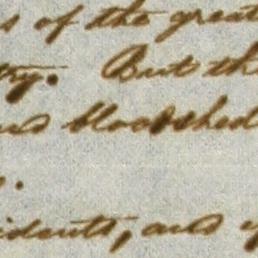 s of the great
try. But th
and bloodshed
idents, and y